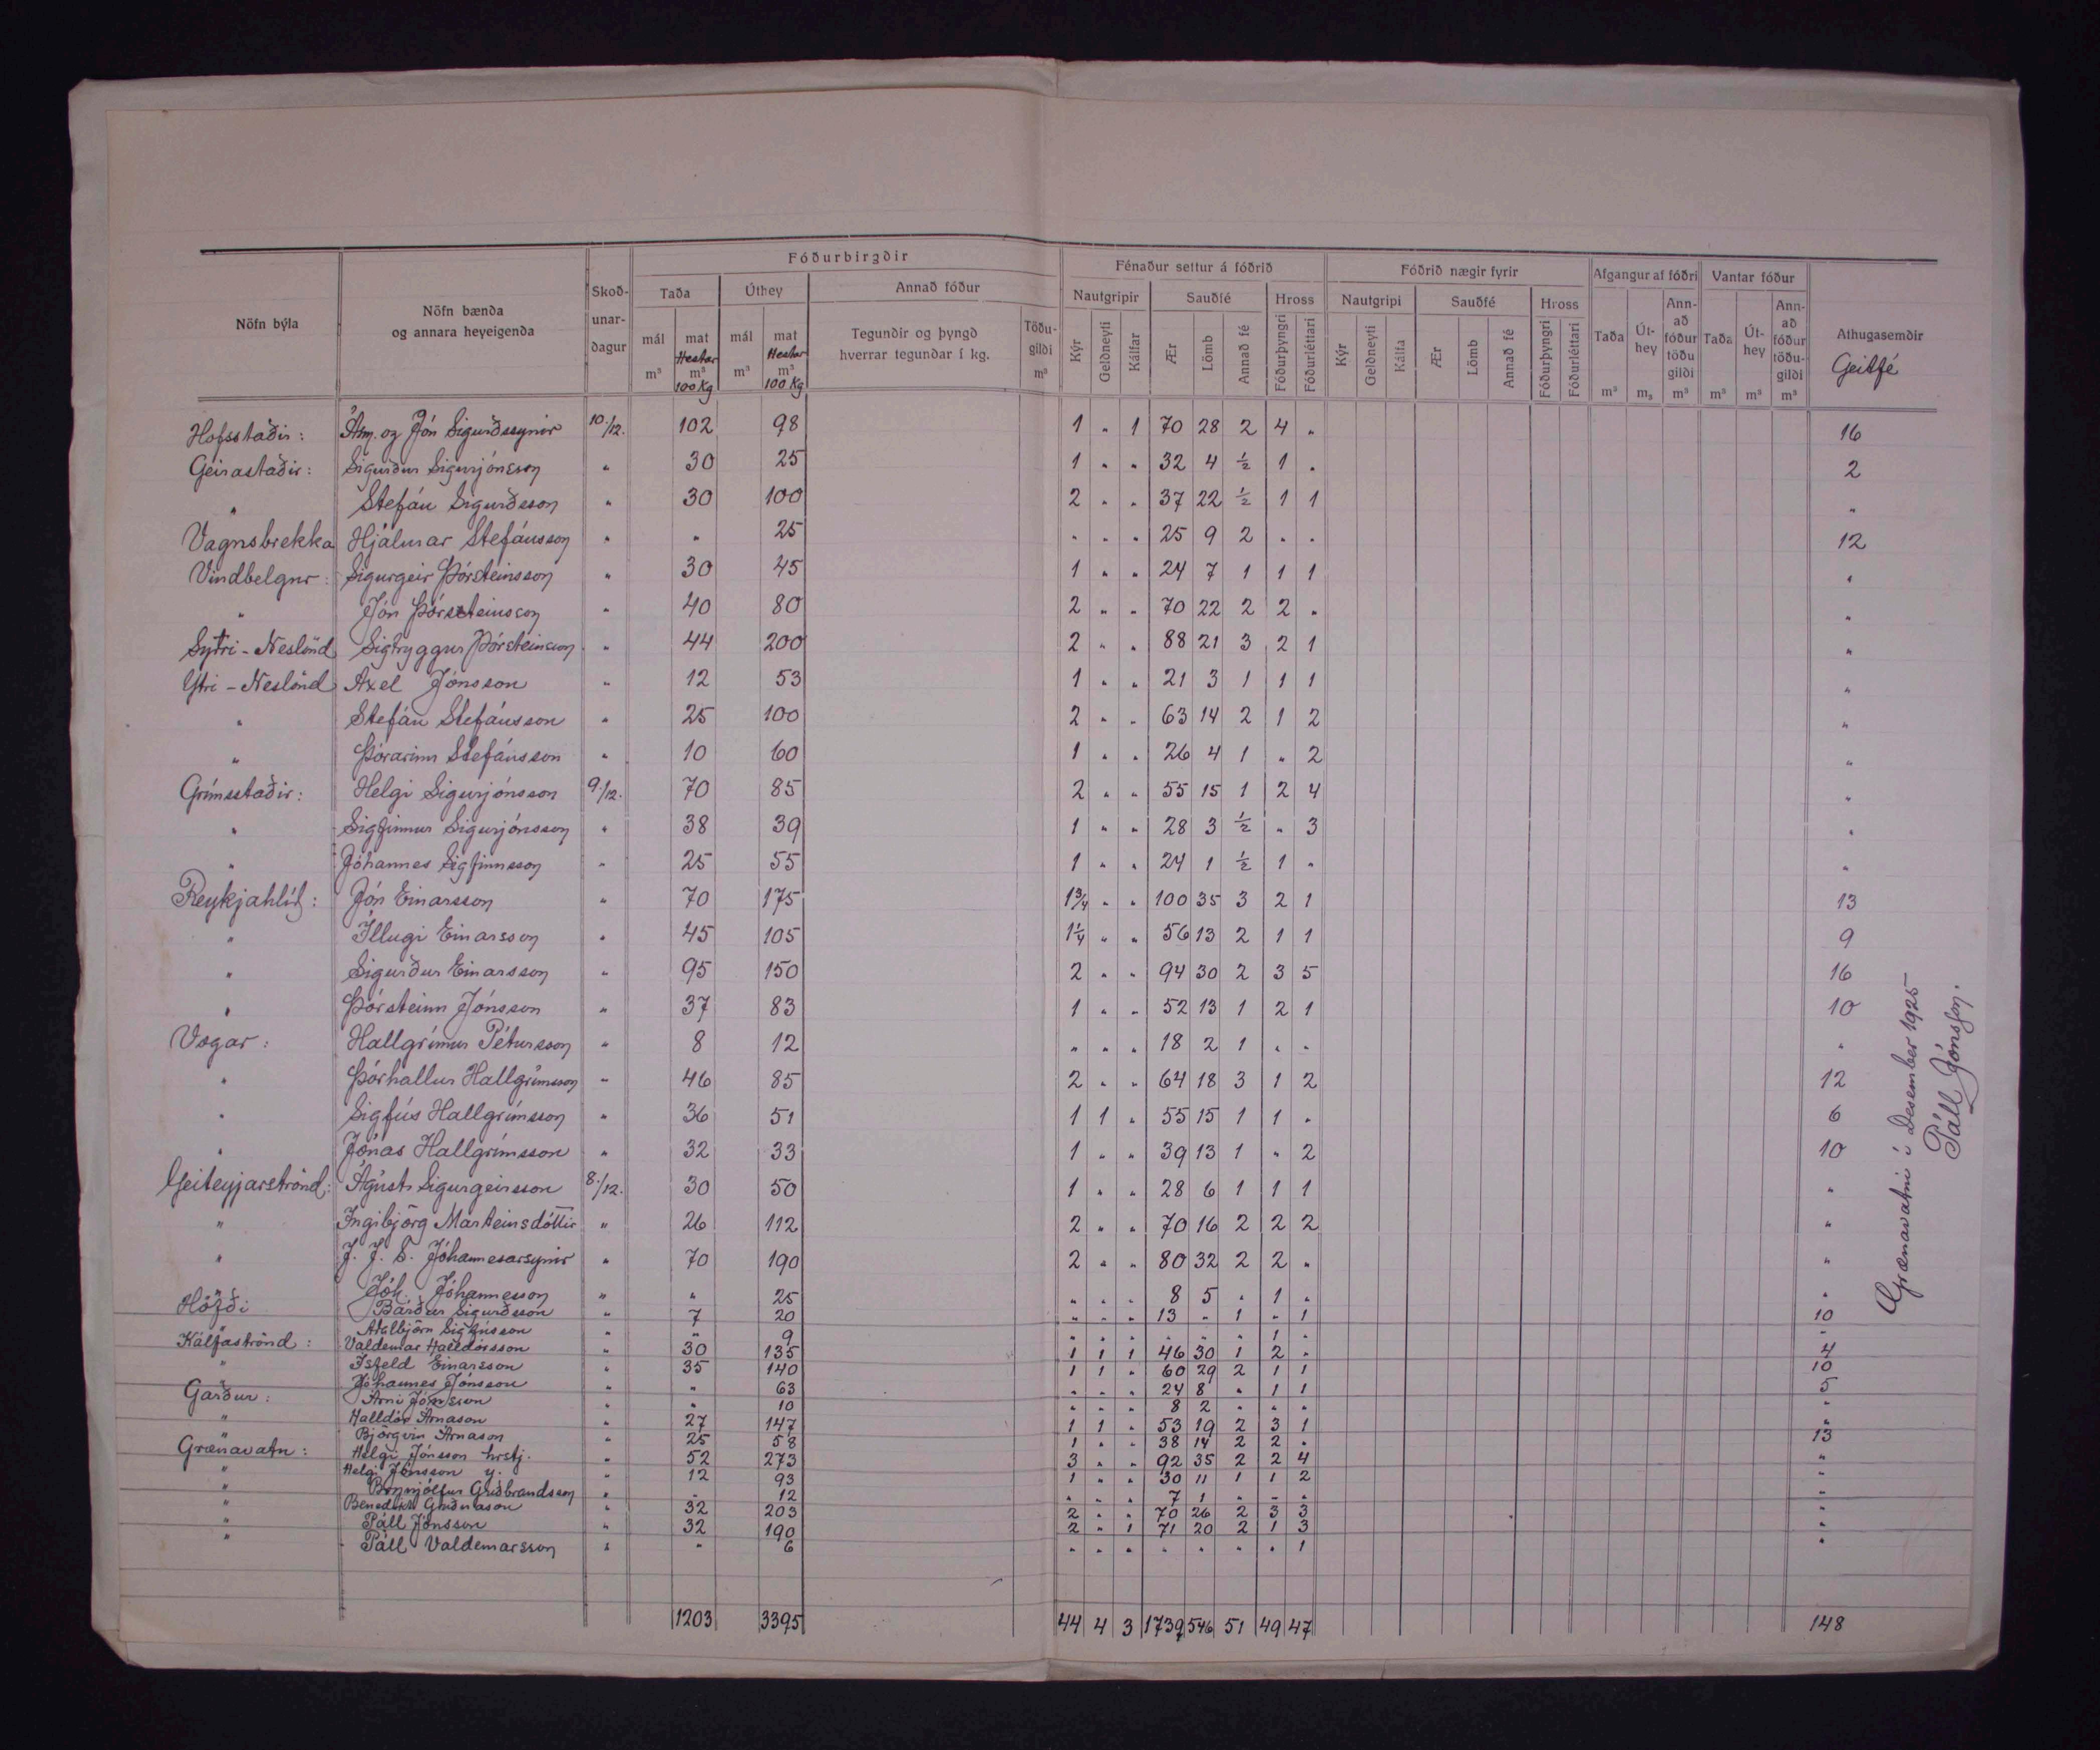 Fóðurbirgðir
Fénaður settur á fóðrið
Fóðrið nægir fyrir
Afgangur af fóðri
Vantar fóður
Nöfn býla
Nöfn bænda og annara heyeigenda
Skoð-unar-dagur
Taða
Úthey
Annað fóður
Nautgripir
Sauðfé
Hross
Nautgripi
Sauðfé
Hross
mál m³
mat Hestar m³ 100 Kg
mál m³
mat Hestar m³ 100 Kg
Tegundir og þyngd hverrar tegundar í kg.
Töðu-gildi m³
Kýr
Geldneyti
Kálfar
Ær
Lömb
Annað fé
Fóðurþyngri
Fóðurléttari
Kýr
Geldneyti
Kálfa
Ær
Lömb
Annað fé
Fóðurþyngri
Fóðurléttari
Taða m³
Út-hey m₃
Ann-að fóður töðu gildi m³
Taða m³
Út-hey m³
Ann-að fóður töðu-gildi m³
Athugasemdir
Geitfé
Hofsstaðir: Ásm. og Jón Sigurðssynir 10./12. 102 98 1 " 1 70 28 2 4 " 16
Geirastaðir: Sigurður Sigurjónsson " 30 25 1 " " 32 4 ½ 1 " 2
" Stefán Sigurðsson " 30 100 2 " " 37 22 ½ 1 1 "
Vagnsbrekka Hjálmar Stefánsson " " 25 " " " 25 9 2 " " 12
Vindbelgur: Sigurgeir Þórsteinsson " 30 45 1 " " 24 7 1 1 1 "
" Jón Þórsteinsson " 40 80 2 " " 70 22 2 2 " "
Sytri-Neslönd Sigtryggur Þórsteinsson " 44 200 2 " " 88 21 3 2 1 "
Ytri-Neslönd Axel Jónsson " 12 53 1 " " 21 3 1 1 1 "
" Stefán Stefánsson " 25 100 2 " " 63 14 2 1 2 "
" Þórarinn Stefánsson " 10 60 1 " " 26 4 1 " 2 "
Grímsstaðir: Helgi Sigurjónsson 9./12. 70 85 2 " " 55 15 1 2 4 "
" Sigfinnur Sigurjónsson " 38 39 1 " " 28 3 ½ " 3 "
" Jóhannes Sigfinnsson " 25 55 1 " " 24 1 ½ 1 " "
Reykjahlíð: Jón Einarsson " 70 175 1¾ " " 100 35 3 2 1 13
" Illugi Einarsson " 45 105 1¼ " " 56 13 2 1 1 9
" Sigurður Einarsson " 95 150 2 " " 94 30 2 3 5 16
" Þórsteinn Jónsson " 37 83 1 " " 52 13 1 2 1 10
Vogar: Hallgrímur Pétursson " 8 12 " " " 18 2 1 " " "
" Þórhallur Hallgrímsson " 46 85 2 " " 64 18 3 1 2 12
" Sigfús Hallgrímsson " 36 51 1 1 " 55 15 1 1 " 6
" Jónas Hallgrímsson " 32 33 1 " " 39 13 1 " 2 10
Geiteyjarströnd: Ágúst Sigurgeirsson 8./12. 30 50 1 " " 28 6 1 1 1 "
" Ingibjörg Marteinsdóttir " 26 112 2 " " 70 16 2 2 2 "
" J. J. S. Jóhannesarsynir " 70 190 2 " " 80 32 2 2 " "
" Jóh. Jóhannesson " " 25 " " " 8 5 " 1 " "
Höfði Bárður Sigurðsson " 7 20 " " " 13 " 1 " 1 10
" Aðalbjörn Sigfússon " " 9 " " " " " " 1 " "
Kálfaströnd: Valdemar Halldórsson " 30 135 1 1 1 46 30 1 2 " 4
" Ísfeld Einarsson " 35 140 1 1 " 60 29 2 1 1 10
" Jóhannes Jónsson " " 63 " " " 24 8 " 1 1 5
Garður: Árni Jónsson " " 10 " " " 8 2 " " " "
" Halldór Árnason " 27 147 1 1 " 53 19 2 3 1 "
" Björgvin Árnason " 25 58 1 " " 38 14 2 2 " 13
Grænavatn: Helgi Jónsson hrstj. " 52 273 3 " " 92 35 2 2 4 "
" Helgi Jónsson y. " 12 93 1 " " 30 11 1 1 2 "
" Brynjólfur Guðbrandsson " " 12 " " " 7 1 " " " "
" Benedikt Guðnason " 32 203 2 " " 70 26 2 3 3 "
" Páll Jónsson " 32 190 2 " 1 71 20 2 1 3 "
" Páll Valdemarsson " " 6 " " " " " " " 1 "
1203 3395 44 4 3 1739 546 51 49 47 148
Grænavatni í Desember 1925
Páll Jónsson.